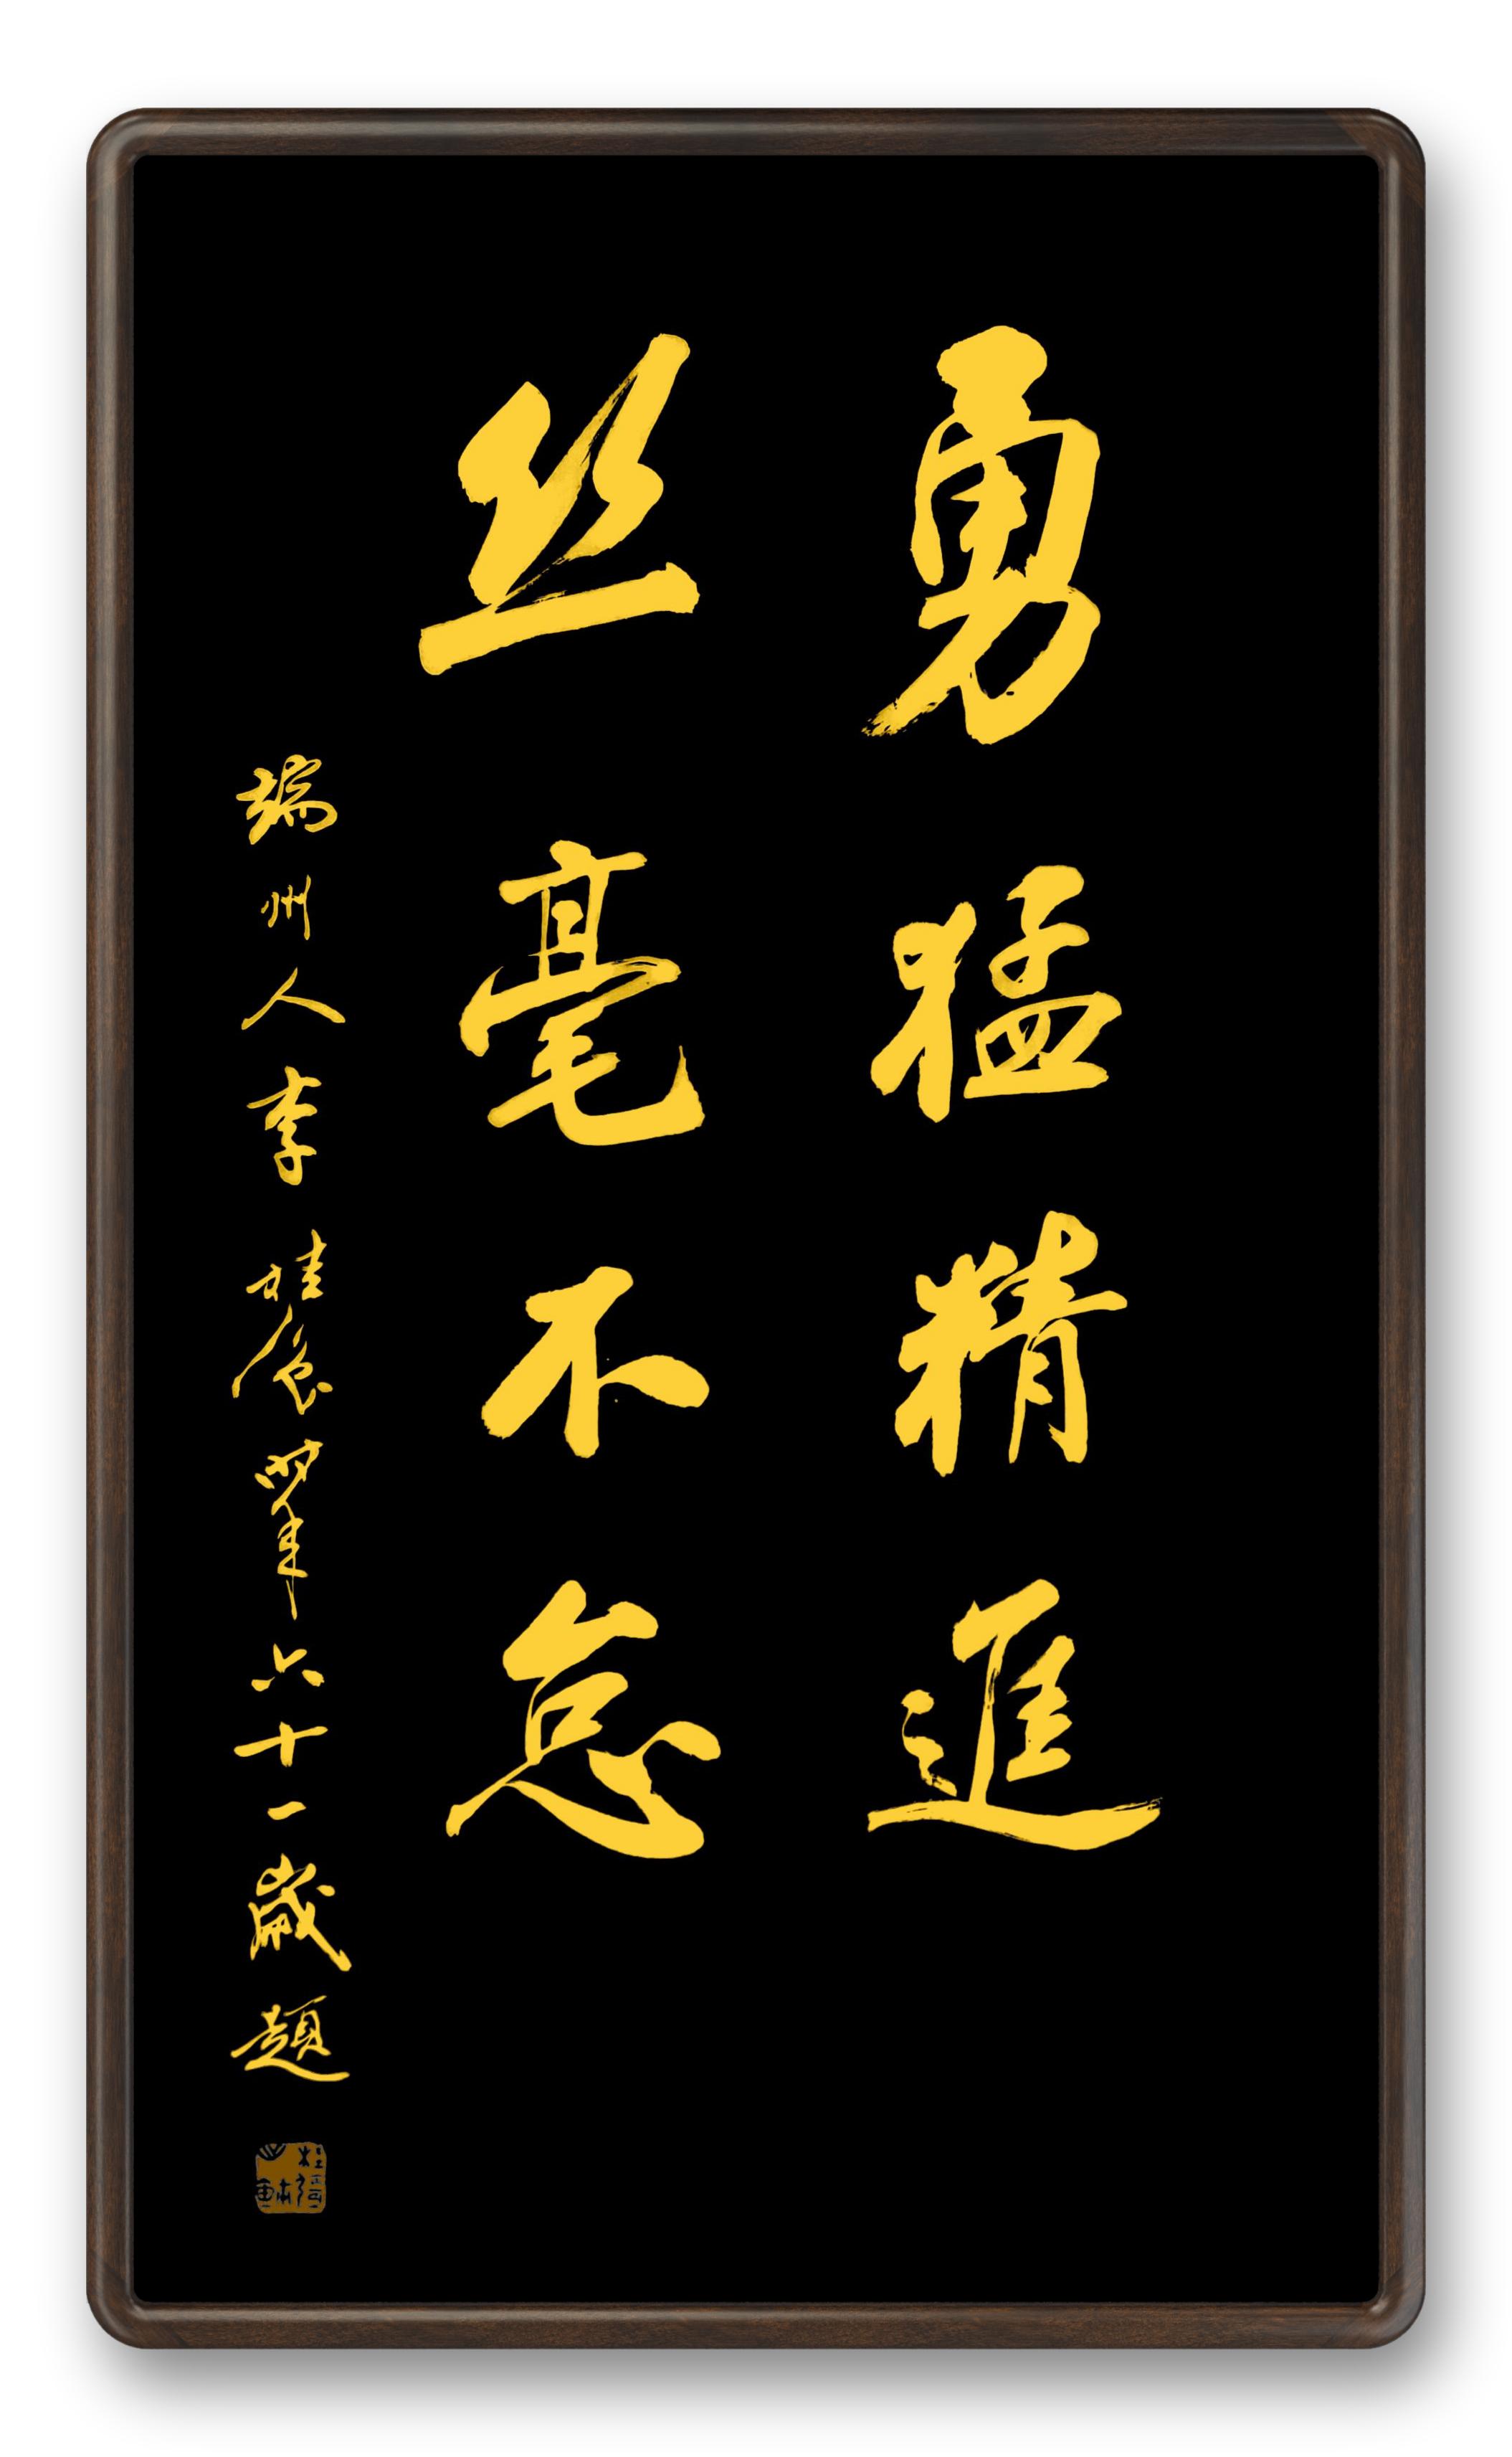 勇猛精進
丝毫不怠
瑞州人李桂龕時年六十一歲題